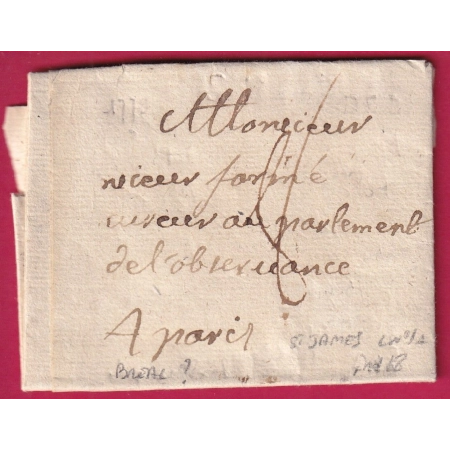 Monsieur
nieur fariné
cureur au parlement
de l'observance
A paris
St JAMES L N° 1A
BREAL ?